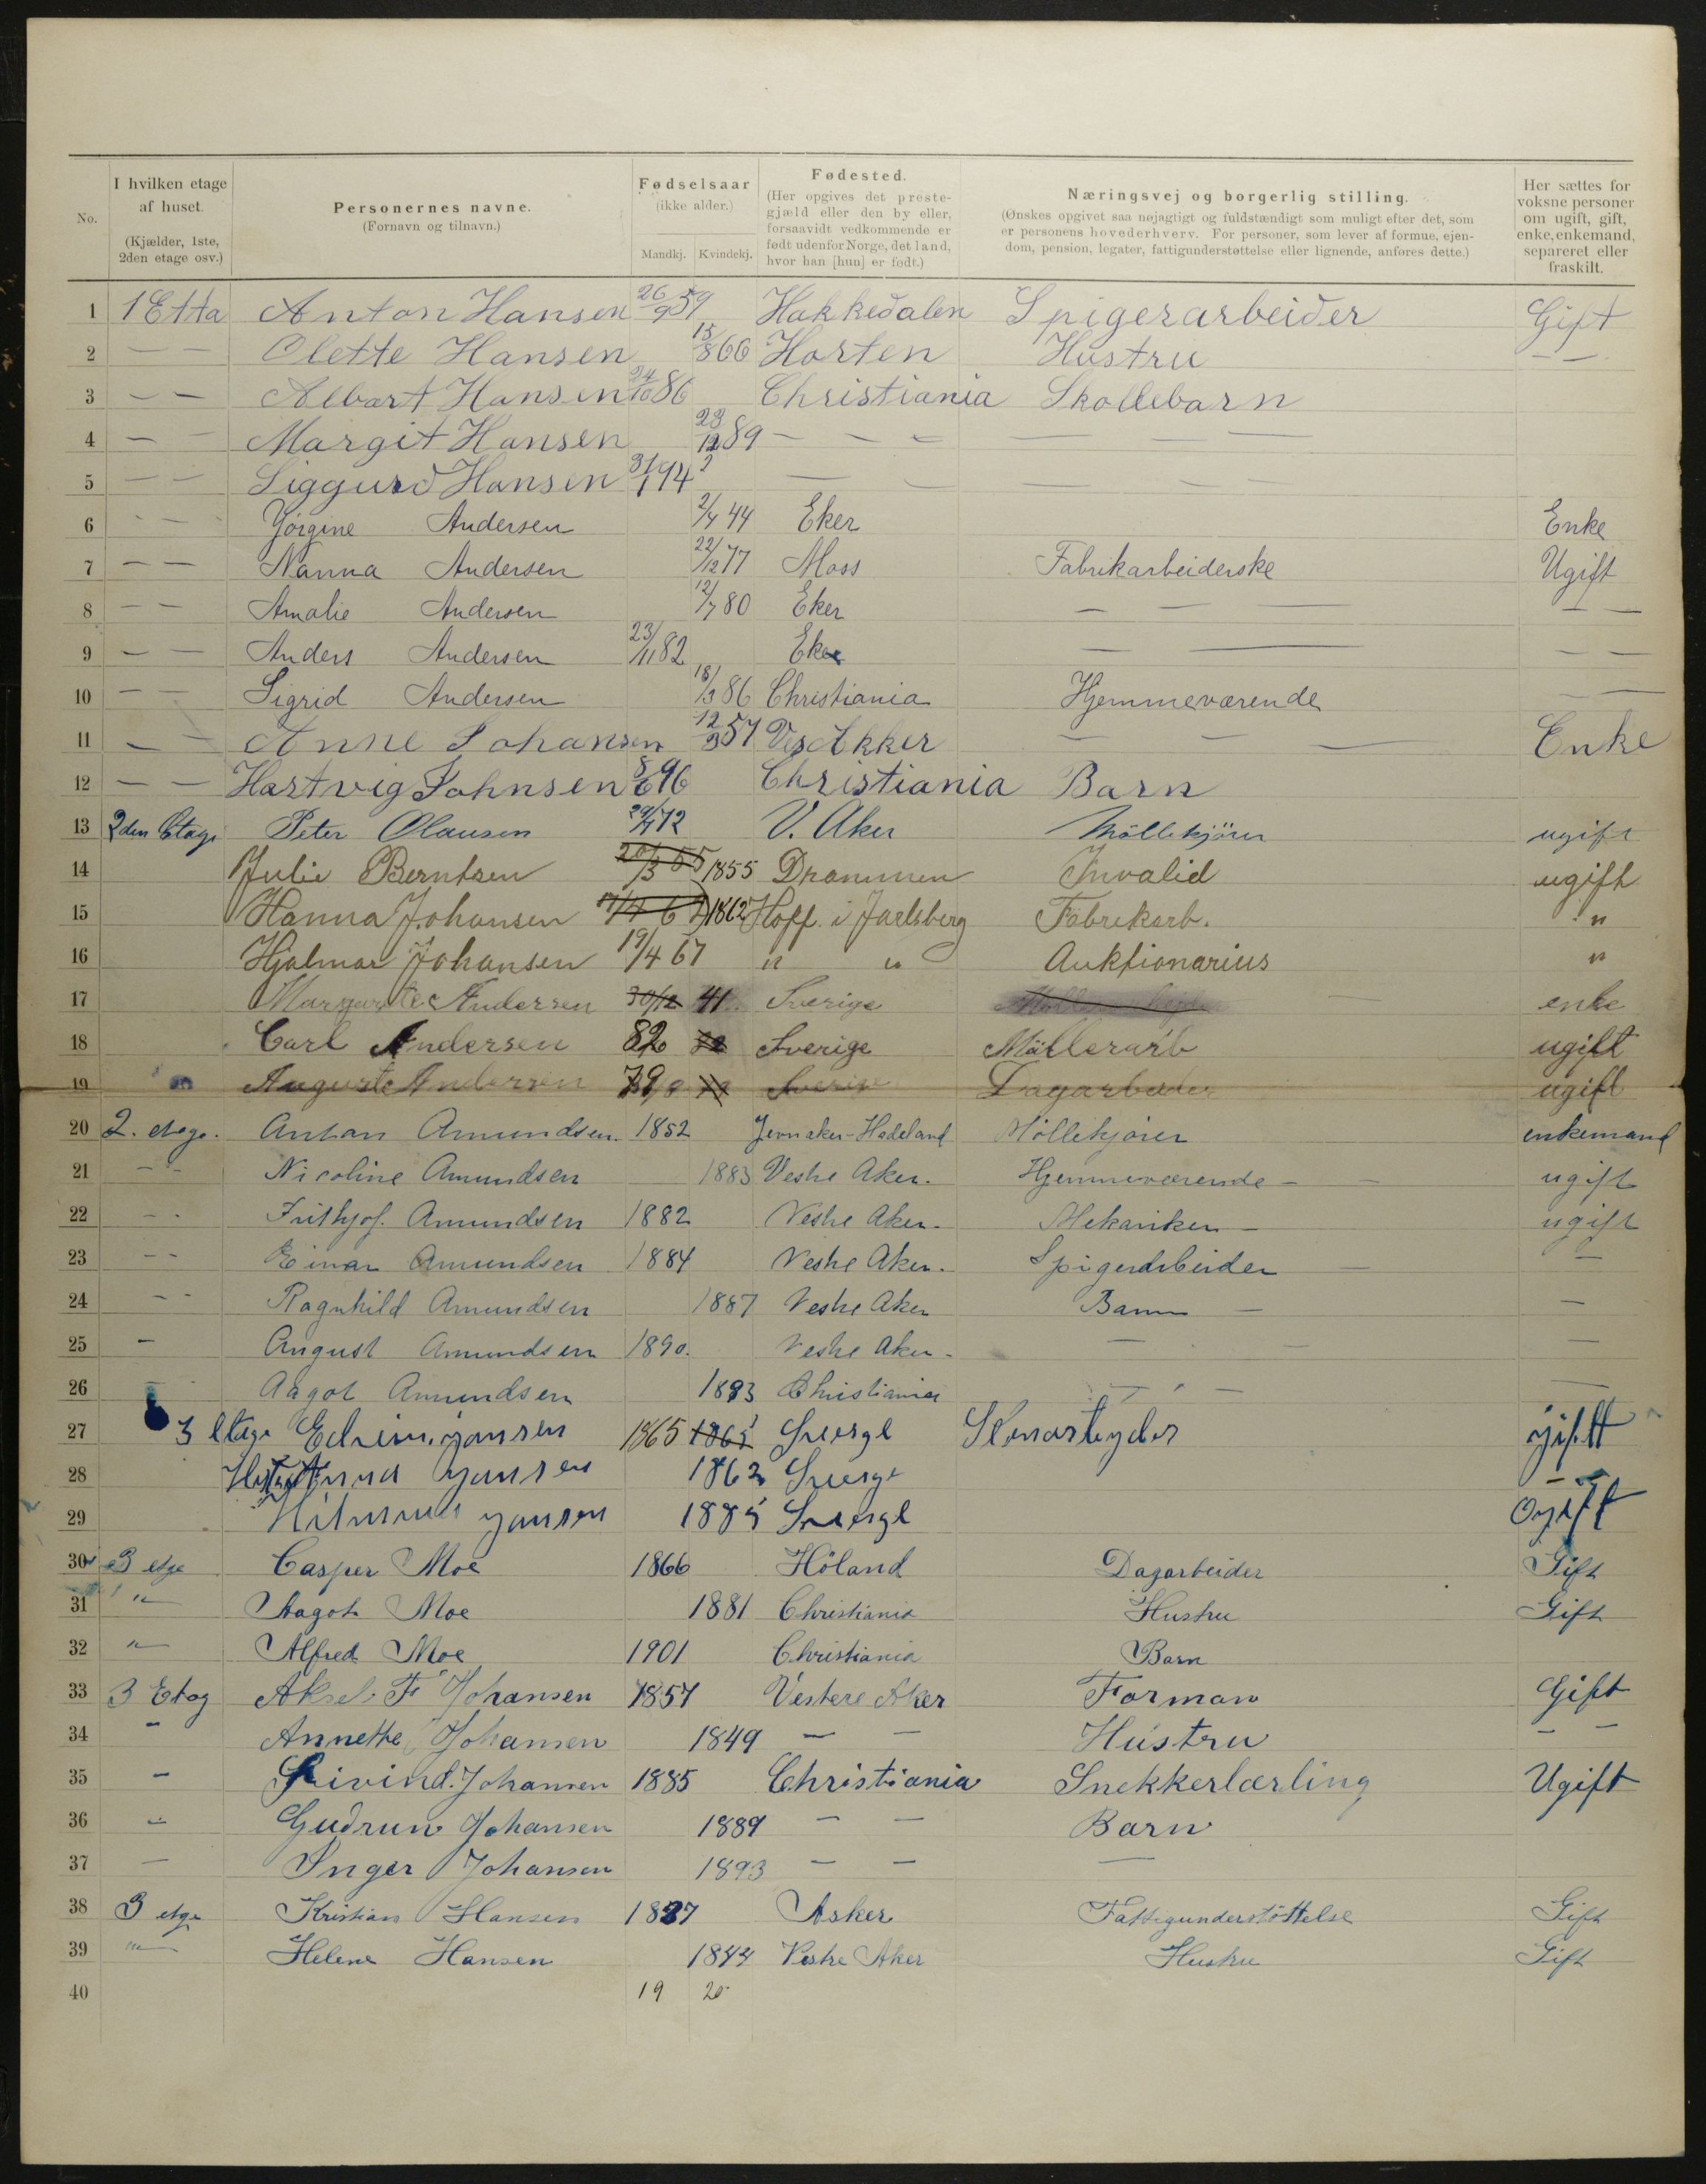 No.
I hvilken etage af huset. (Kjælder, 1ste, 2den etage osv.)
Personernes navne. (Fornavn og tilnavn.)
Fødselsaar (ikke alder.) Mandkj. Kvindekj.
Fødested. (Her opgives det prestegjæld eller den by eller, forsaavidt vedkommende er født udenfor Norge, det land, hvor han [hun] er født.)
Næringsvej og borgerlig stilling. (Ønskes opgivet saa nøjagtigt og fuldstændigt som muligt efter det, som er personens hovederhverv. For personer, som lever af formue, ejendom, pension, legater, fattigunderstøttelse eller lignende, anføres dette.)
Her sættes for voksne personer om ugift, gift, enke, enkemand, separeret eller fraskilt.
1 1 Etta Anton Hansen 26/9 59 Hakkedalen Spigerarbeider Gift
2 — — Olette Hansen 15/8 66 Horten Hustru — —
3 — — Albart Hansen 24/10 86 Christiania Skollebarn
4 — — Margit Hansen 23/12 89 — — — — — —
5 — — Siggurd Hansen 31/1 94 — — — — —
6 - — Jørgine Andersen 2/4 44 Eker Enke
7 — — Nanna Andersen 22/12 77 Moss Fabrikarbeiderske Ugift
8 — — Amalie Andersen 12/7 80 Eker — — — — —
9 — — Anders Andersen 23/11 82 Eker — — — —
10 — — Sigrid Andersen 18/3 86 Christiania Hjemmeværende — —
11 — — Anne Johansen 12/3 57 Ves Akker — — — Enke
12 — — Hartvig Johnsen 8/6 96 Christiania Barn
13 2den Etage Peter Olausen 29/4 72 V. Aker Möllekjörer ugift
14 Julie Berntsen 20/3 55 1855 Drammen Invalid ugift
15 Hanna Johansen 17/4 62 1862 Hoff i Jarlsberg Fabrekarb. "
16 Hjalmar Johansen 19/4 67 " " Auktionarius "
17 Margarete Andersen 30/12 41 Sverige enke
18 Carl Andersen 82 Sverige Möllerarb ugift
19 Auguste Andersen 79 Sverie Dagarbeider ugift
20 2. etage. Anton Amundsen. 1852 Jevnaker-Hadeland Möllekjører enkemand
21 - - Nicoline Amundsen 1883 Vestre Aker. Hjemmeværende — — ugift
22 - - Frithjof. Amundsen 1882 Vestre Aker. Mekaniker — ugift
23 - - Einar Amundsen 1884 Vestre Aker. Spigerarbeider — —
24 - - Ragnhild Amundsen 1887 Vestre Aker Barn — —
25 - August Amundsen 1890. Vestre Aker. — — —
26 - Aagot Amundsen 1893 Christiania — — —
27 3 etage Jansen 1865 1865 Sverge gift
28 Anna Jansen 1862 Sverge — —
29 Jansen 1885 Sverge Ogift
30 3 etge Casper Moe 1866 Höland Dagarbeider Gift
31 " Aagot Moe 1881 Christiania Hustru Gift
32 " Alfred Moe 1901 Christiania Barn
33 3 Etag Aksel F Johansen 1857 Vestere Aker Forman Gift
34 - Annette Johansen 1849 — — Hústru — —
35 - Eivind. Johansen 1885 Christiania Snekkerlærling Ugift
36 - Gudrun Johansen 1889 — — Barn
37 — Inger Johansen 1893 — — —
38 3 etge Kristian Hansen 1837 Asker Fattigunderstöttelse Gift
39 " Helene Hansen 1844 Vestre Aker Hustru Gift
40 19 20